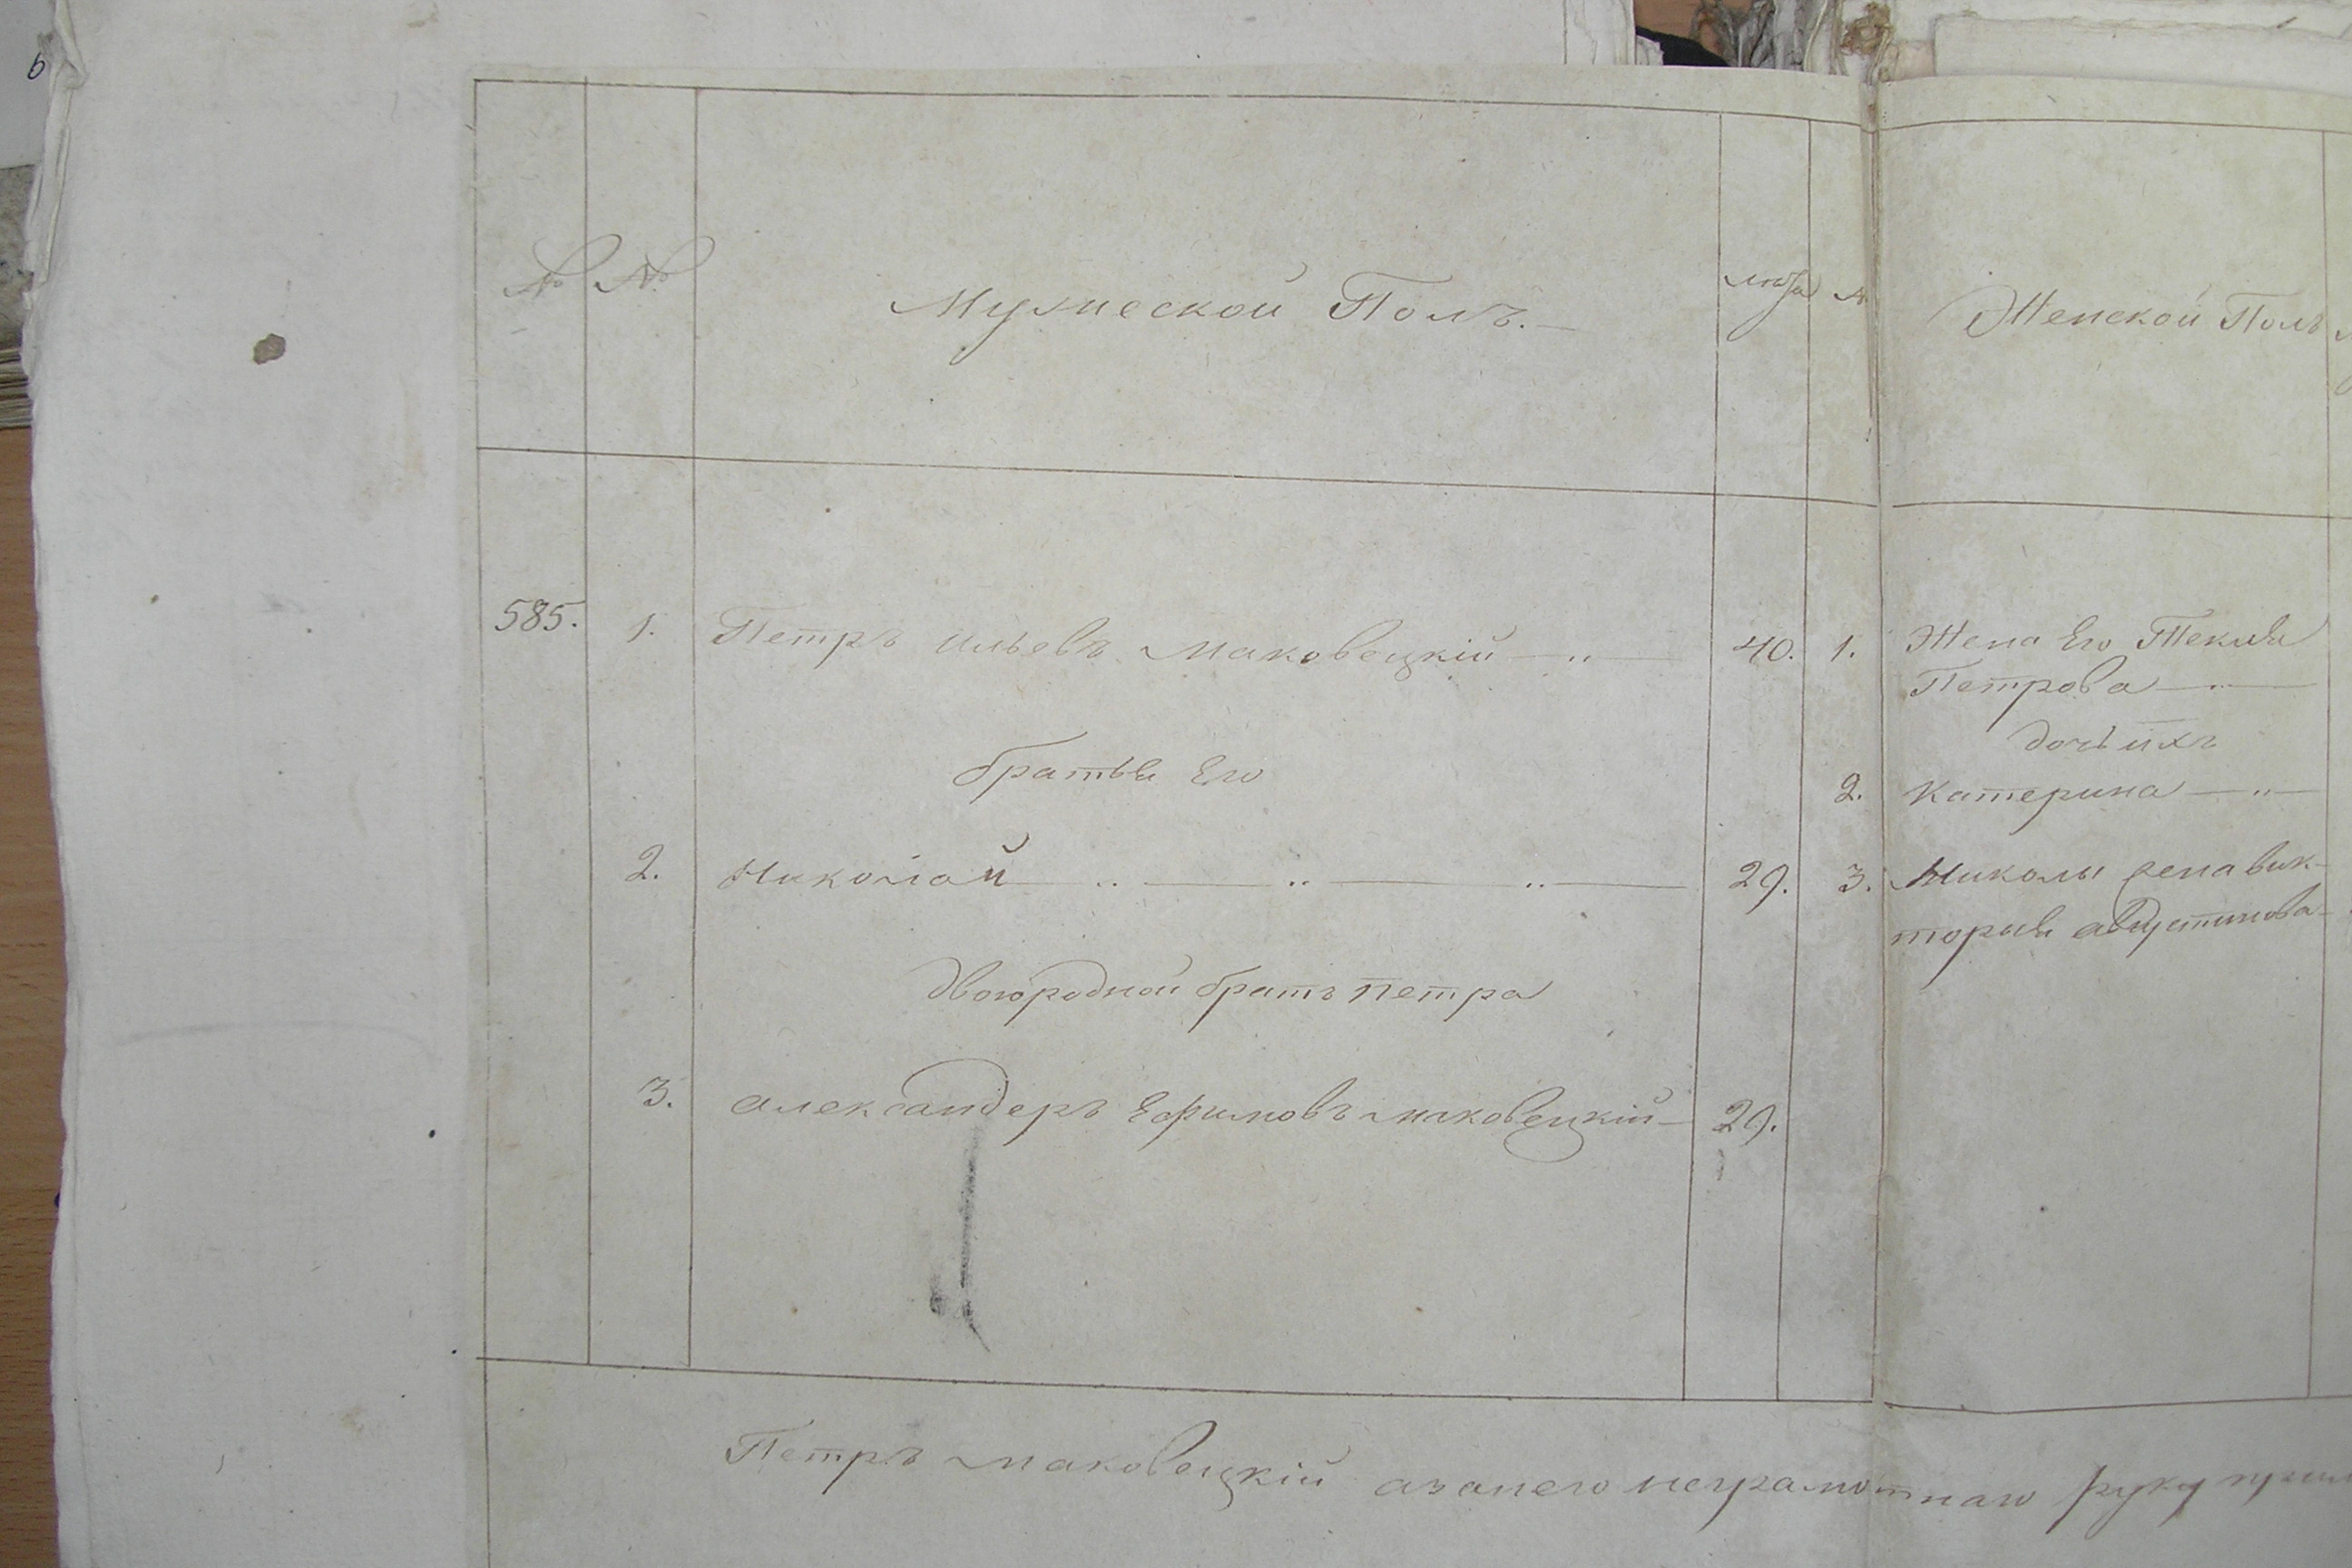 6
№ № Мужеской Полъ. лѣта № Женской Полъ
585. 1. Петръ Ильевъ Маковецкій 40. 1. Жена Его Текля
Петрова
дочь ихъ
братья Его
2. Катерина
2. Николай 29. 3. Николы жена Вик-
торыя Августинова
двоюродной братъ Петра
3. Александеръ Ефимовъ Маковецкій 29.
Петръ Маковецкій а за него неграмотнаго руку